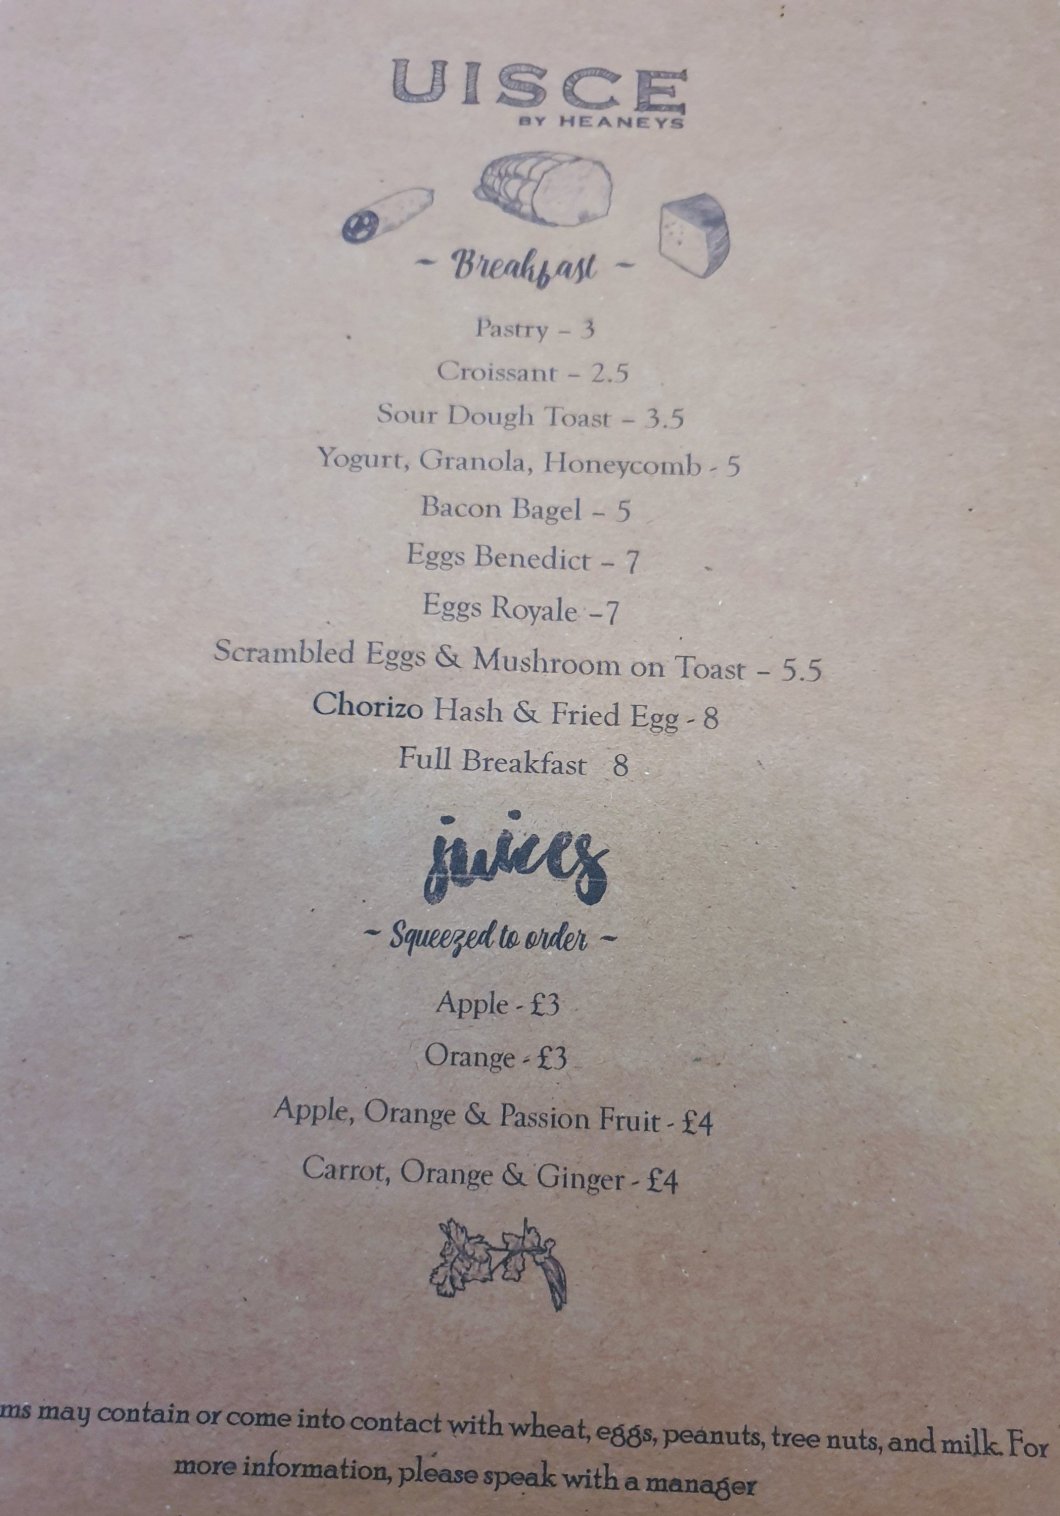 UISCE
BY HEANEYS
~ Breakfast ~
Pastry – 3
Croissant – 2.5
Sour Dough Toast – 3.5
Yogurt, Granola, Honeycomb - 5
Bacon Bagel – 5
Eggs Benedict – 7
Eggs Royale –7
Scrambled Eggs & Mushroom on Toast – 5.5
Chorizo Hash & Fried Egg - 8
Full Breakfast 8
juices
~ Squeezed to order ~
Apple - £3
Orange - £3
Apple, Orange & Passion Fruit - £4
Carrot, Orange & Ginger - £4
ms may contain or come into contact with wheat, eggs, peanuts, tree nuts, and milk. For
more information, please speak with a manager